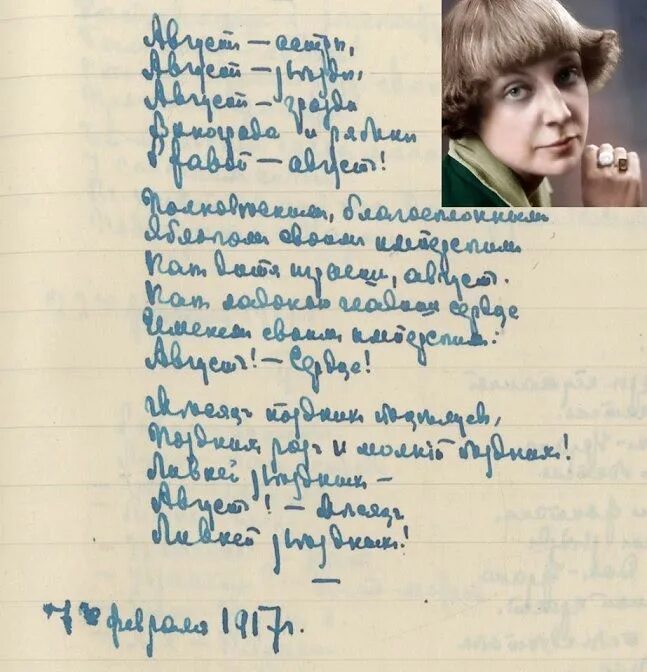 Август — астры,
Август — звѣзды,
Август — грозди
Винограда и рябины
Ржавой — август!
Полновесным, благосклонным
Яблоком своим имперским
Как дитя играешь, август.
Как ладонью гладишь сердце
Именем своим имперским:
Август! — Сердце!
Мѣсяц поздних поцелуев,
Поздних роз и молній поздних!
Ливней звѣздных —
Август! — Мѣсяц
Ливней звѣздных!
7го февраля 1917г.